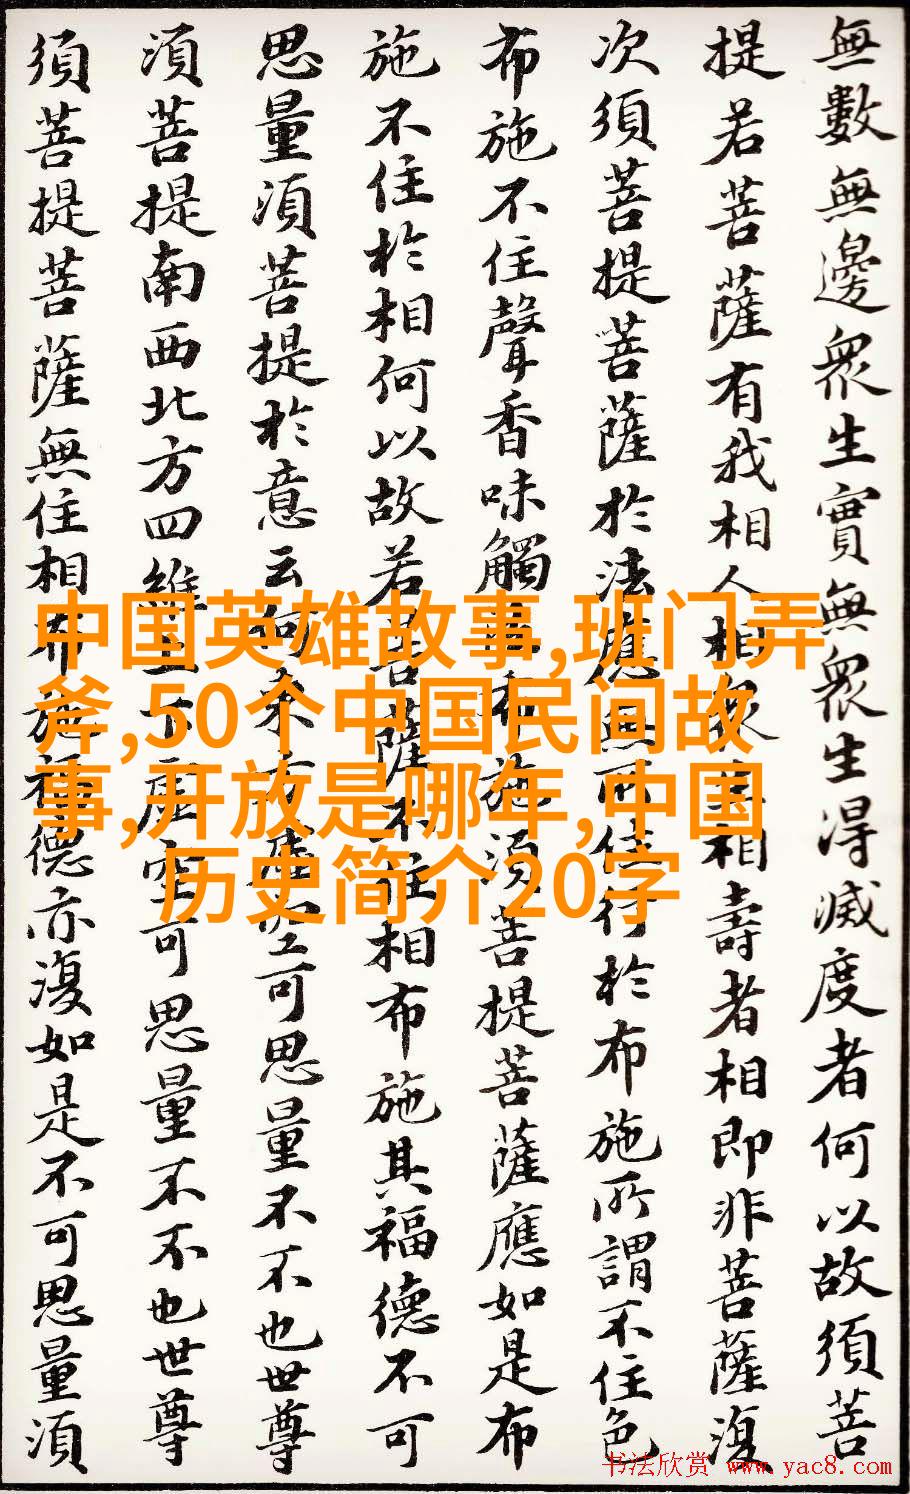 無數無邊衆生實無衆生得滅度者何以故須菩
提若菩薩有我相人相衆生相壽者相即非菩薩復
次須菩提菩薩於法應無所住行於布施所謂不住色
布施不住聲香味觸法布施須菩提菩薩應如是布
施不住於相何以故若菩薩不住相布施其福德不可
思量須菩提於意云何東方虛空可思量不不也世尊
須菩提南西北方四維上下虛空可思量不不也世尊
須菩提菩薩無住相布施福德亦復如是不可思量須
中国英雄故事,班门弄
斧,50个中国民间故
事,开放是哪年,中国
历史简介20字
书法欣赏 www.yac8.com